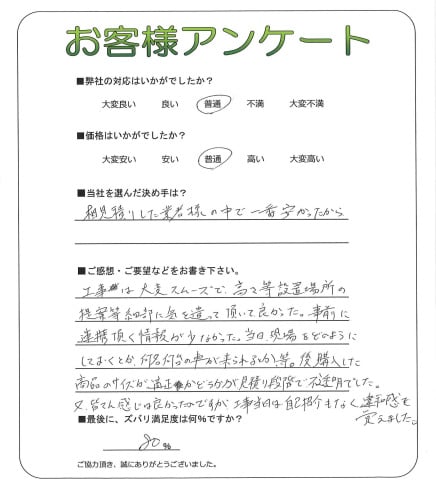 お客様アンケート
■弊社の対応はいかがでしたか?
大変良い 良い 普通 不満 大変不満
■価格はいかがでしたか?
大変安い 安い 普通 高い 大変高い
■当社を選んだ決め手は?
相見積りした業者様の中で一番安かったから
■ご感想・ご要望などをお書き下さい。
工事は大変スムーズで、高さ等設置場所の
提案等細部に気を遣って頂いて良かった。事前に
連携頂く情報が少なかった。当日、現場をどのように
しておくとか、何名何台の車が来られるとか、等。後購入した
商品のサイズが適正かどうかが見積り段階で不透明でした。
又、皆さん感じは良かったのですが工事当日は自己紹介もなく違和感を
覚えました。
■最後に、ズバリ満足度は何%ですか?
80 %
ご協力頂き、誠にありがとうございました。